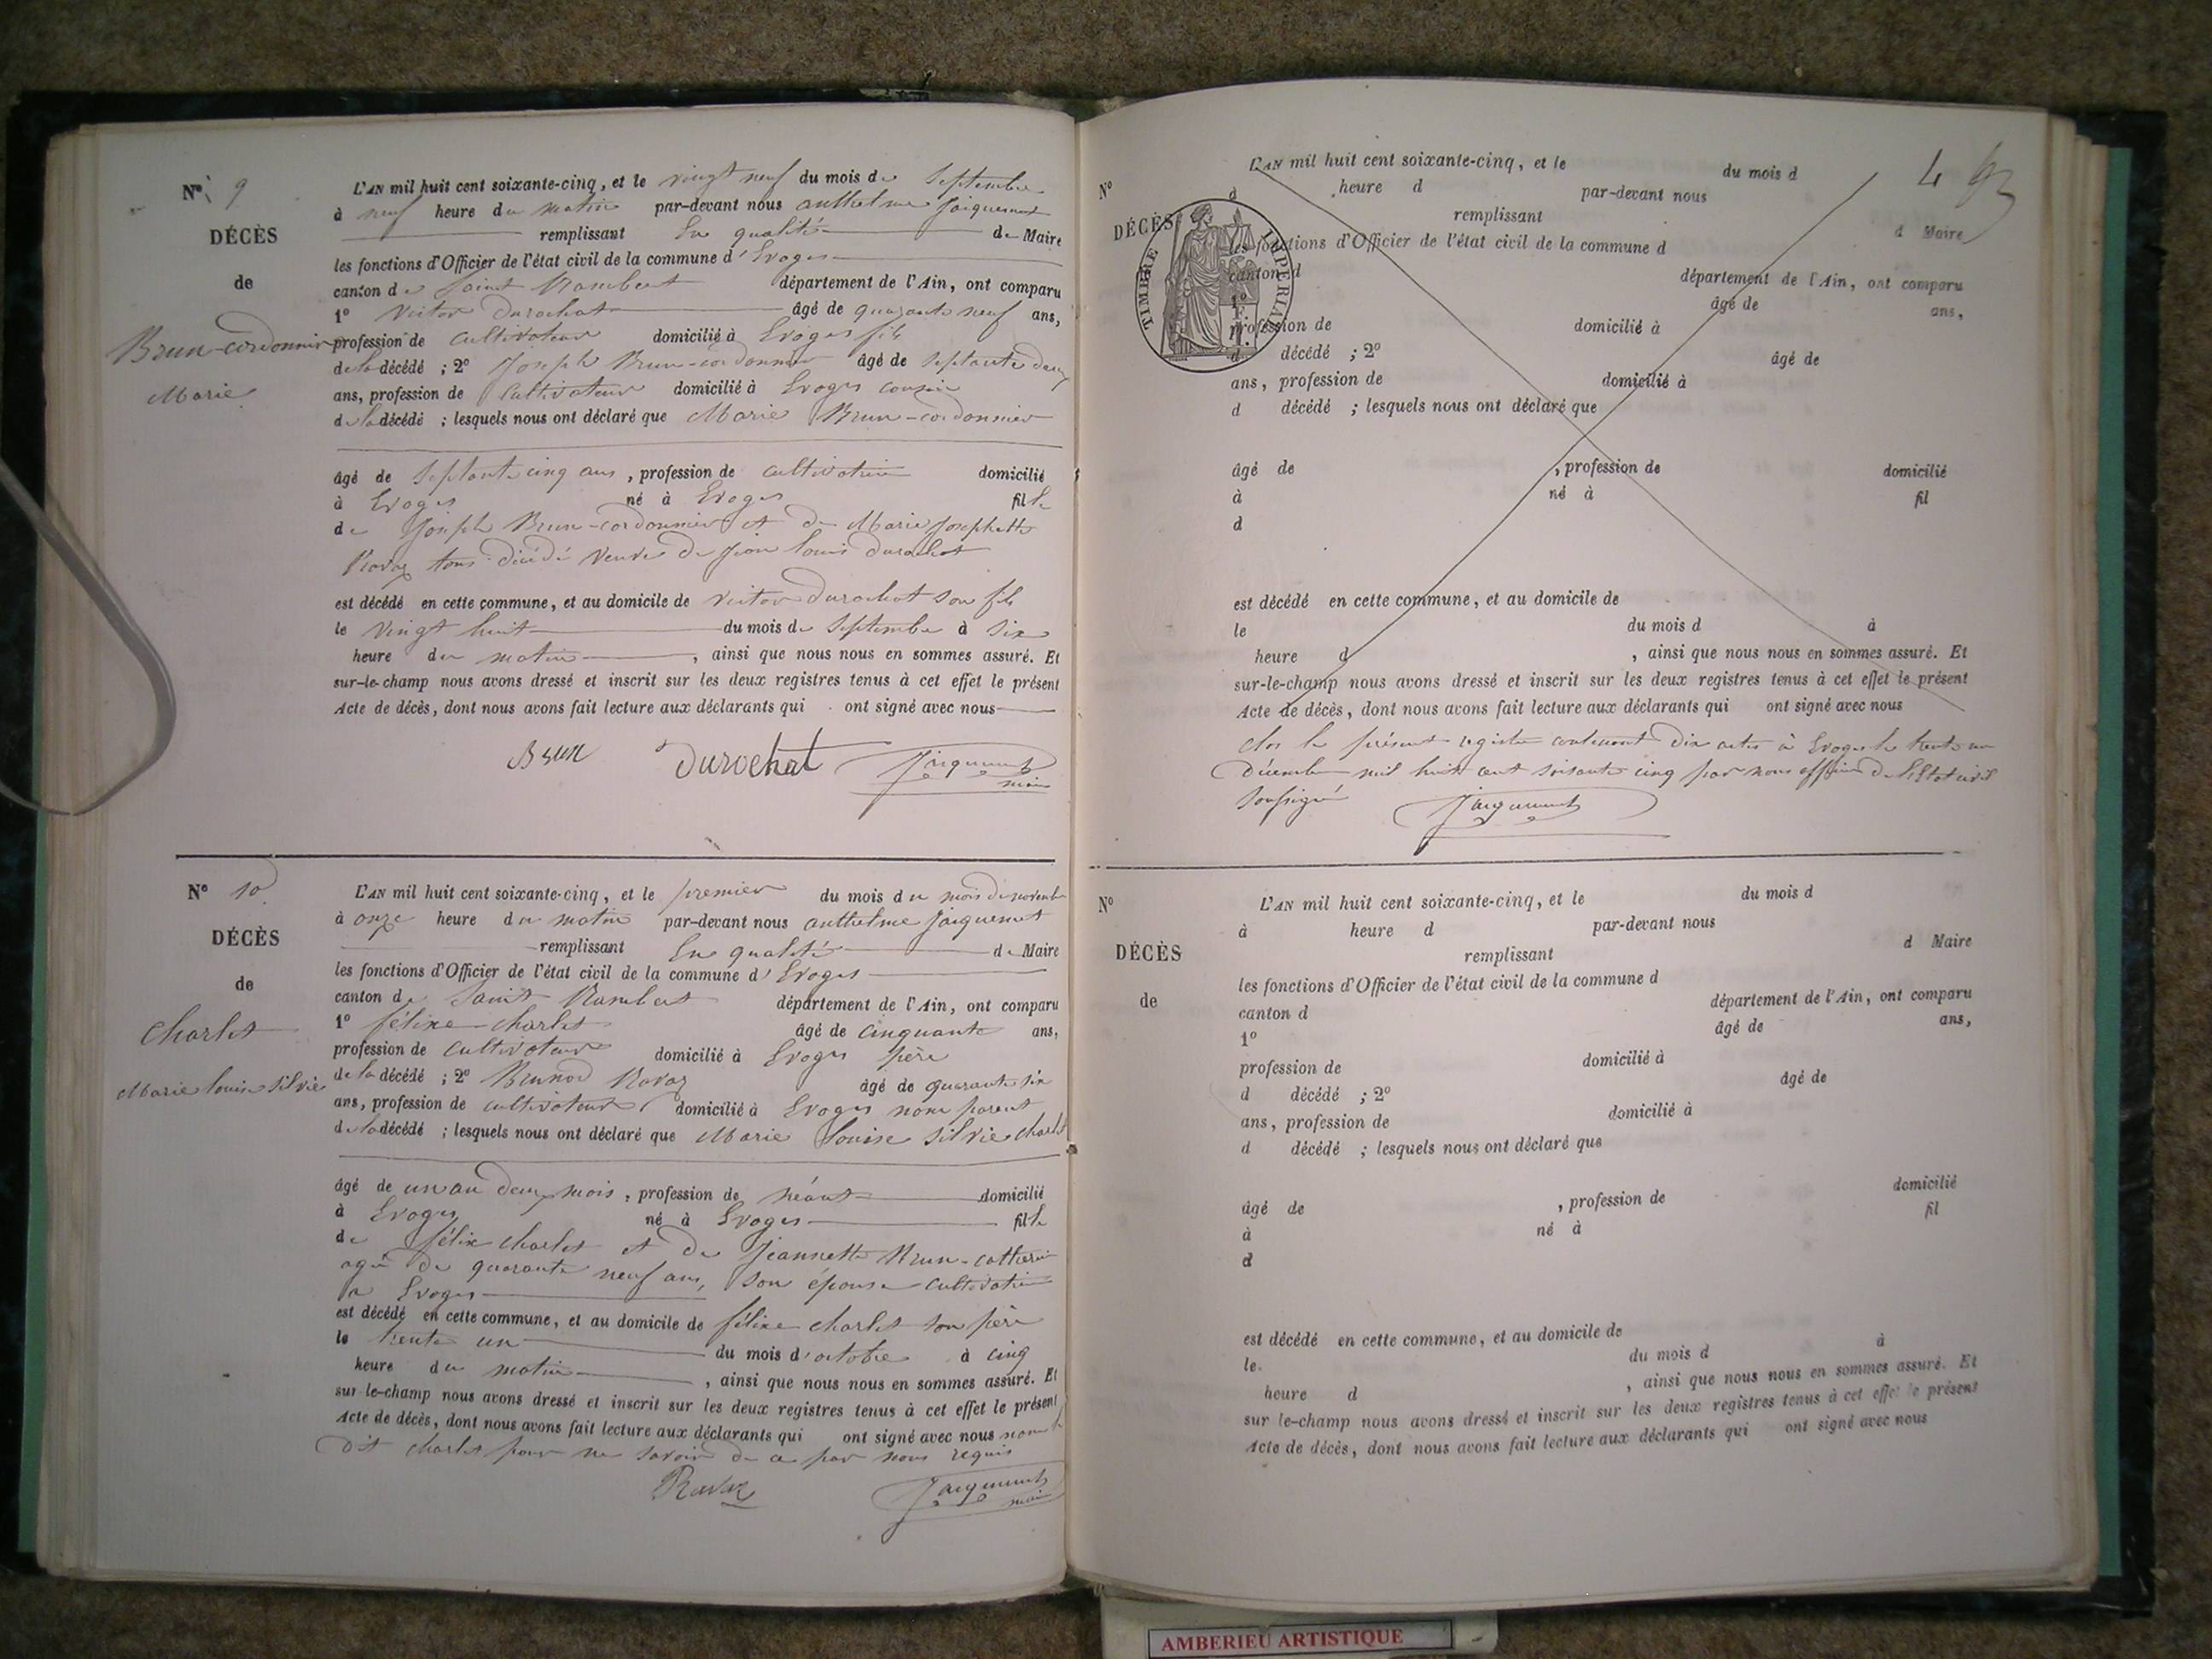 N° 9
DÉCÈS
de
Brun-cordonnier
Marie
L'AN mil huit cent soixante-cinq, et le vingt neuf du mois de Septembre
à neuf heure du matin par-devant nous anthelme Jaiquemet
remplissant En qualité de Maire
les fonctions d'Officier de l'état civil de la commune d'Evoges
canton de Saint Rambert département de l'Ain, ont comparu
1° Victor durochat âgé de quarante neuf ans,
profession de cultivateur domicilié à Evoges fils
de la décédé ; 2° Joseph Brun-cordonnier âgé de septante deux
ans, profession de Cultivateur domicilié à Evoges cousin
de la décédé ; lesquels nous ont déclaré que Marie Brun-cordonnier
âgé de Septante cinq ans, profession de cultivatrice domicilié
à Evoges né à Evoges fille
de Joseph Brun-cordonnier et de Marie Josephette
Ravaz tous décédé veuve de Jean louis durochat
est décédé en cette commune, et au domicile de Victor durochat son fils
le Vingt huit du mois de Septembre à Six
heure du matin, ainsi que nous nous en sommes assuré. Et
sur-le-champ nous avons dressé et inscrit sur les deux registres tenus à cet effet le présent
Acte de décès, dont nous avons fait lecture aux déclarants qui ont signé avec nous
Brun Durochat Jaiquemet
maire
N° 10
DÉCÈS
de
Charlet
Marie louise silvie
L'AN mil huit cent soixante-cinq, et le premier du mois du mois de novembre
à onze heure du matin par-devant nous anthelme Jaiquemet
remplissant En qualité de Maire
les fonctions d'Officier de l'état civil de la commune d'Evoges
canton de Saint Rambert département de l'Ain, ont comparu
1° félixe charlet âgé de cinquante ans,
profession de cultivateur domicilié à Evoges père
de la décédé ; 2° Brunod Ravaz âgé de quarante six
ans, profession de cultivateur domicilié à Evoges nom parent
de la décédé ; lesquels nous ont déclaré que Marie Louise silvie charlet
âgé de un an deux mois, profession de néant domicilié
à Evoges né à Evoges fille
de félix charlet et de Jeannette Brun-cotterin
agé de quarante neuf ans, son épouse cultivatrice
a Evoges
est décédé en cette commune, et au domicile de félixe charlet son père
le trente un du mois d'octobre à cinq
heure du matin, ainsi que nous nous en sommes assuré. Et
sur-le-champ nous avons dressé et inscrit sur les deux registres tenus à cet effet le présent
Acte de décès, dont nous avons fait lecture aux déclarants qui ont signé avec nous
dit charlet pour ne savoir de ce par nous requis
Ravaz Jaiquemet
maire
493
N°
DÉCÈS
TIMBRE IMPERIAL
L'AN mil huit cent soixante-cinq, et le du mois d
heure d par-devant nous
remplissant d Maire
les fonctions d'Officier de l'état civil de la commune d
canton d département de l'Ain, ont comparu
1° âgé de ans,
profession de domicilié à
d décédé ; 2° âgé de
ans, profession de domicilié à
d décédé ; lesquels nous ont déclaré que
âgé de , profession de domicilié
à né à fil
d
est décédé en cette commune, et au domicile de
le du mois d à
heure d , ainsi que nous nous en sommes assuré. Et
sur-le-champ nous avons dressé et inscrit sur les deux registres tenus à cet effet le présent
Acte de décès, dont nous avons fait lecture aux déclarants qui ont signé avec nous
Clos le présent registre contenant dix actes à Evoges le trente un
Décembre mil huit cent soisante cinq par nous officier de l'Etat civil
Soussigné Jaiquemet
N°
DÉCÈS
de
L'AN mil huit cent soixante-cinq, et le du mois d
à heure d par-devant nous
remplissant d Maire
les fonctions d'Officier de l'état civil de la commune d
canton d département de l'Ain, ont comparu
1° âgé de ans,
profession de domicilié à
d décédé ; 2° âgé de
ans, profession de domicilié à
d décédé ; lesquels nous ont déclaré que
âgé de , profession de domicilié
à né à fil
d
est décédé en cette commune, et au domicile de
le du mois d à
heure d , ainsi que nous nous en sommes assuré. Et
sur le-champ nous avons dressé et inscrit sur les deux registres tenus à cet effet le présent
Acte de décès, dont nous avons fait lecture aux déclarants qui ont signé avec nous
AMBERIEU ARTISTIQUE